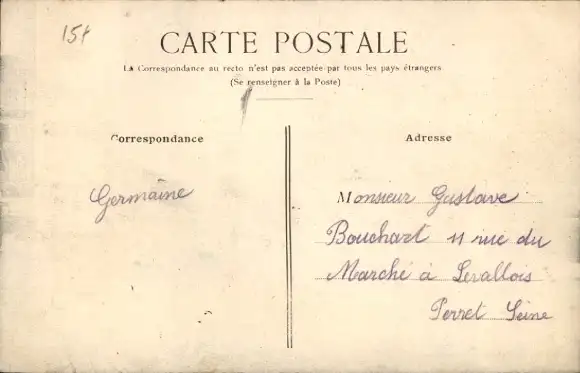 15f
CARTE POSTALE
La Correspondance au recto n'est pas acceptée par tous les pays étrangers
(Se renseigner à la Poste)
Correspondance
Adresse
Germaine
Monsieur Gustave
Bouchart 11 rue du
Marché à Levallois
Perret Seine